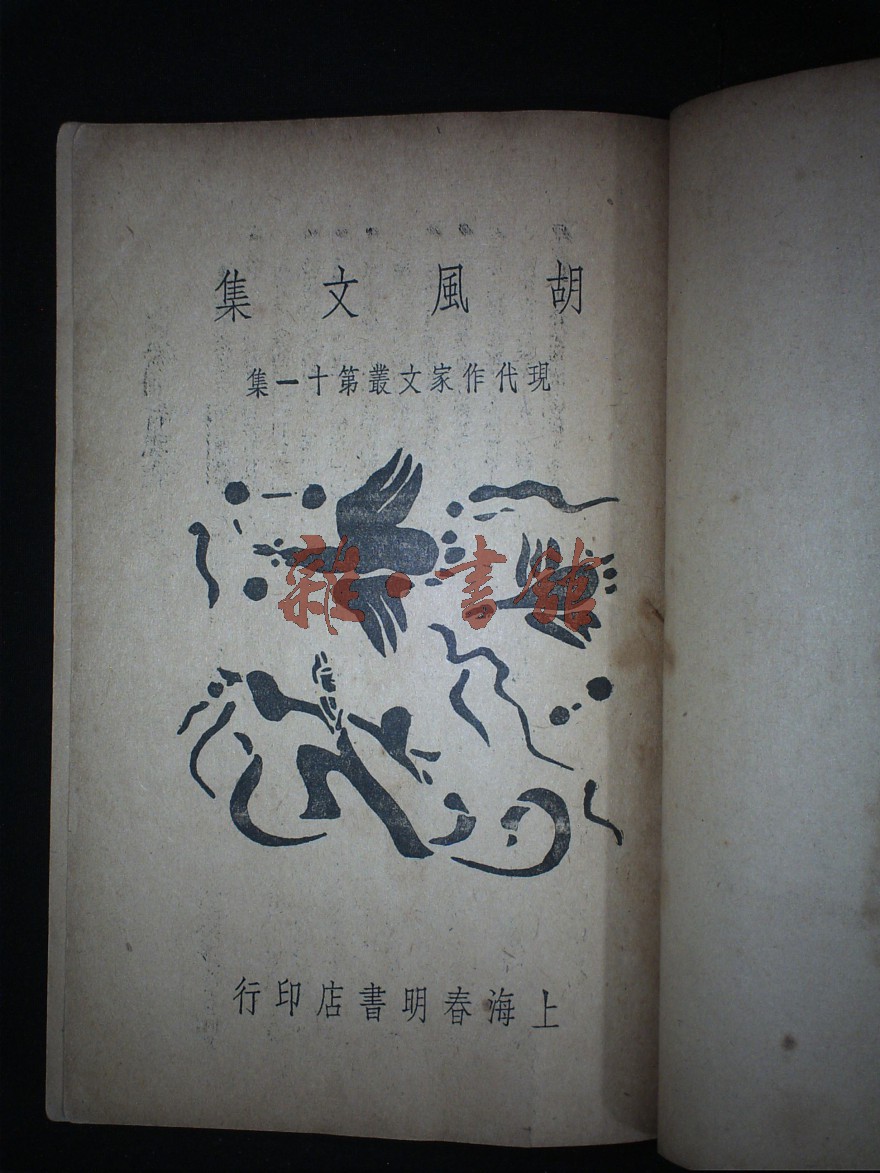 胡風文集
現代作家文叢第十一集
雜·書館
上海春明書店印行